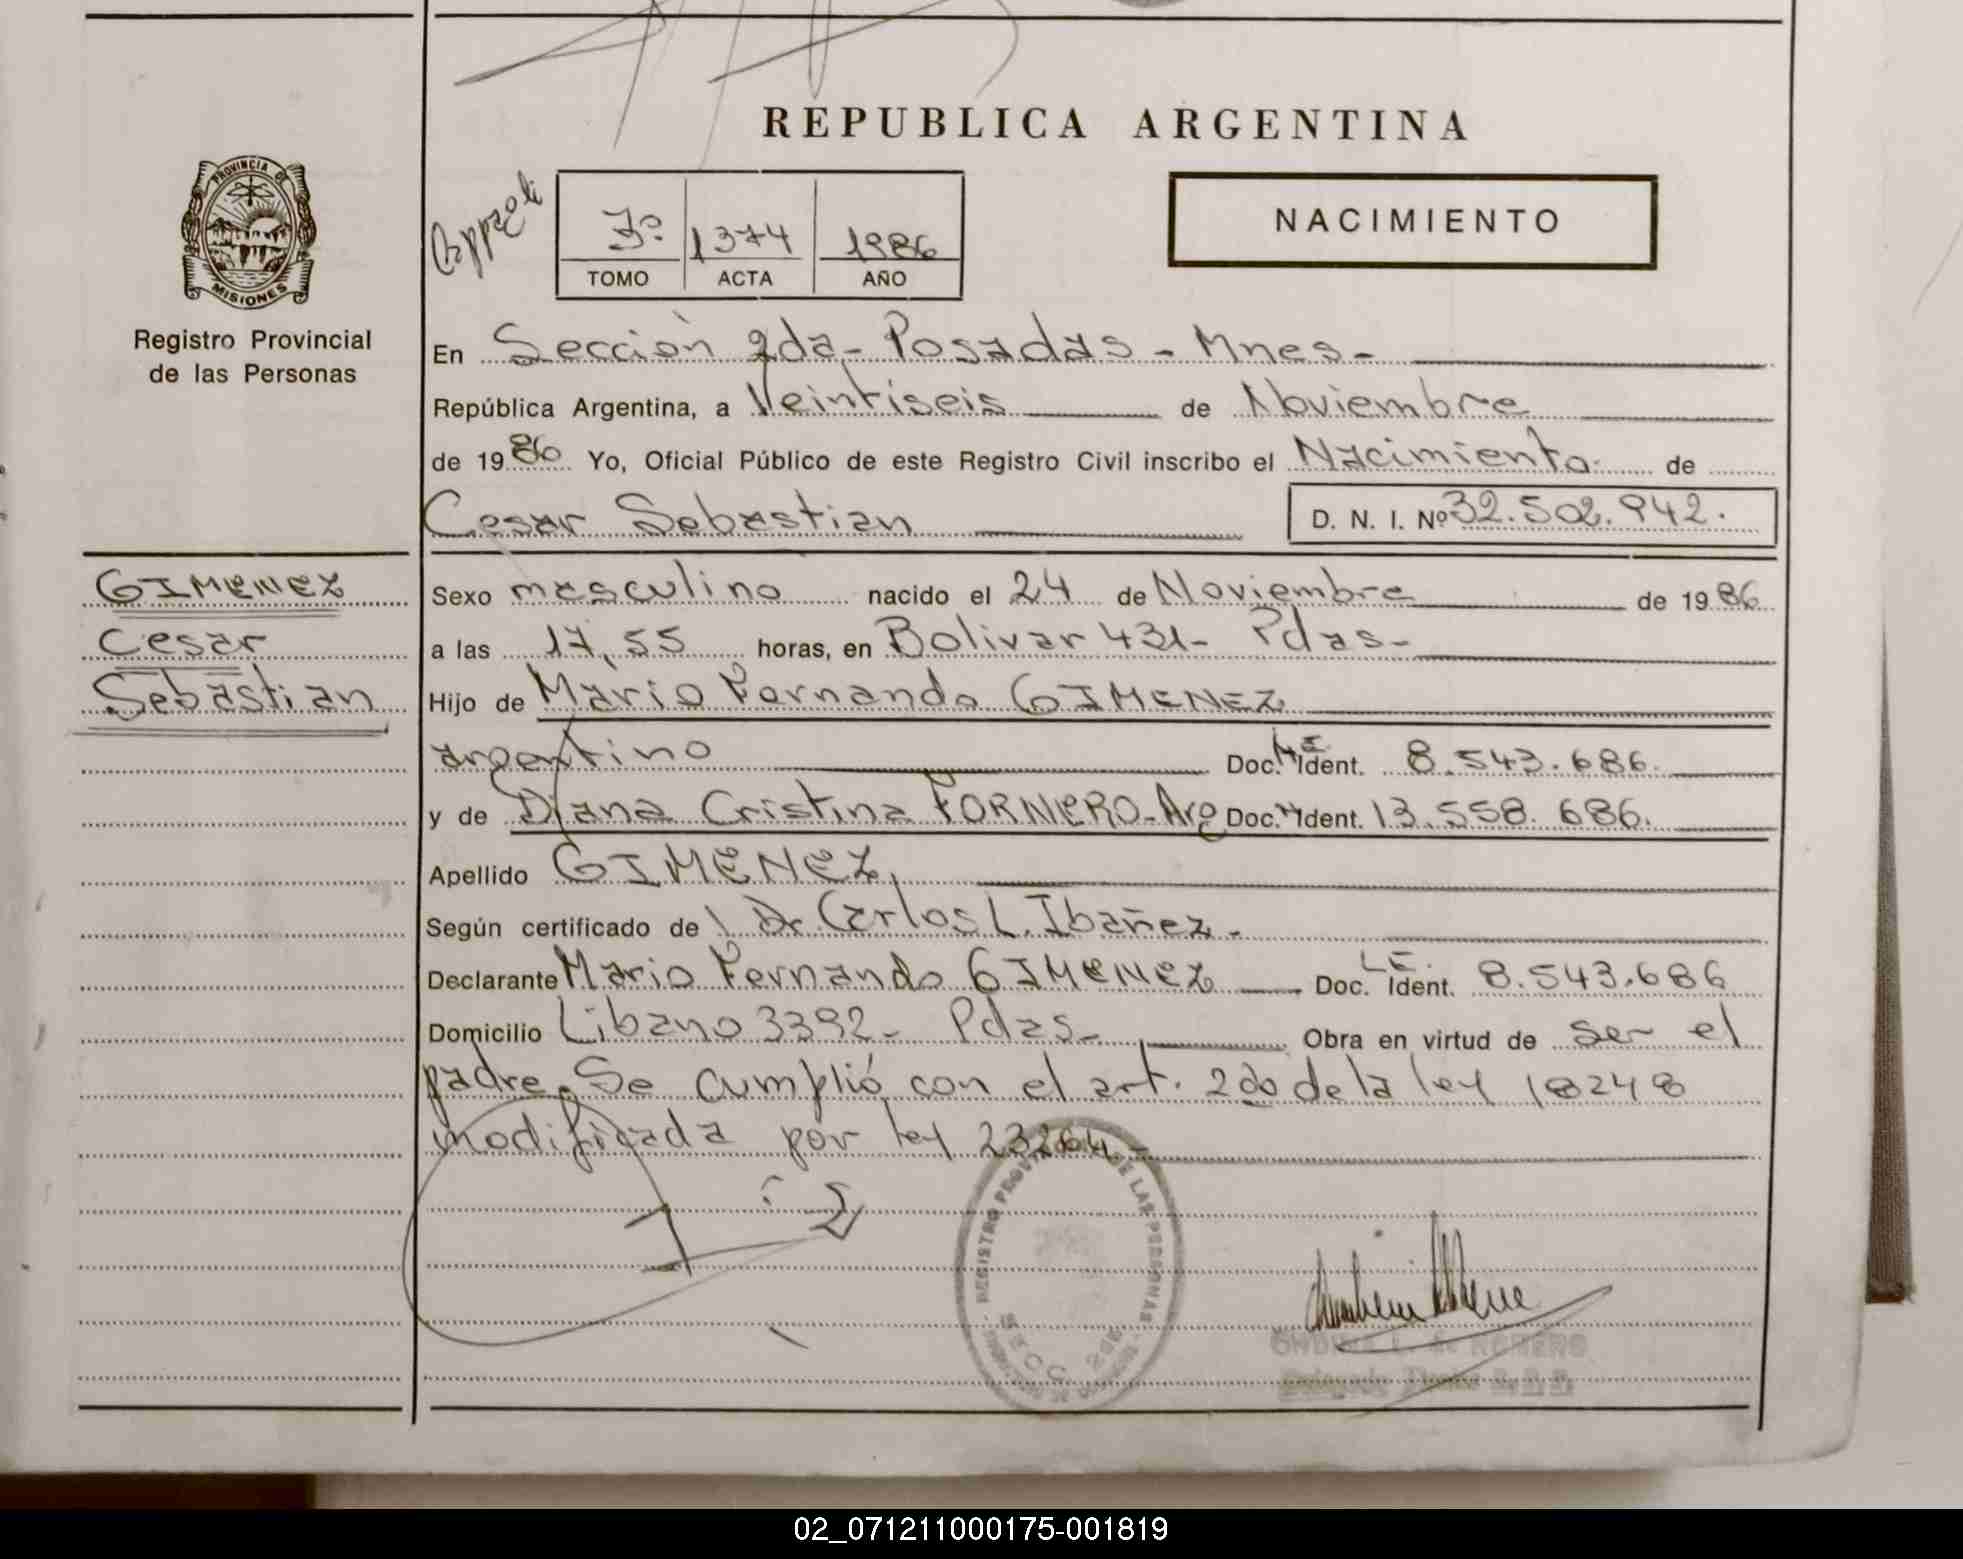 REPUBLICA ARGENTINA
PROVINCIA DE
MISIONES
Registro Provincial
de las Personas
3º 1374 1986
TOMO ACTA AÑO
NACIMIENTO
En Sección 2da - Posadas - Mnes -
República Argentina, a Veintiseis de Noviembre
de 1986 Yo, Oficial Público de este Registro Civil inscribo el Nacimiento de
Cesar Sebastian D. N. I. Nº 32.502.942.
GIMENEZ
Cesar
Sebastian
Sexo masculino nacido el 24 de Noviembre de 1986
a las 17,55 horas, en Bolivar 431- Pdas-
Hijo de Mario Fernando GIMENEZ
argentino Doc. Ident. 8.543.686.
y de Diana Cristina FORNERO - Arg Doc. Ident. 13.558.686.
Apellido GIMENEZ
Según certificado de Dr. Carlos L. Ibañez -
Declarante Mario Fernando GIMENEZ Doc. L.E. Ident. 8.543.686
Domicilio Libano 3392 - Pdas - Obra en virtud de ser el
padre. Se cumplió con el art. 2do de la ley 18248
modificada por ley 23264 -
REGISTRO PROVINCIAL DE LAS PERSONAS
SECC. 2da
ONDINA L. de ROMERO
02_071211000175-001819